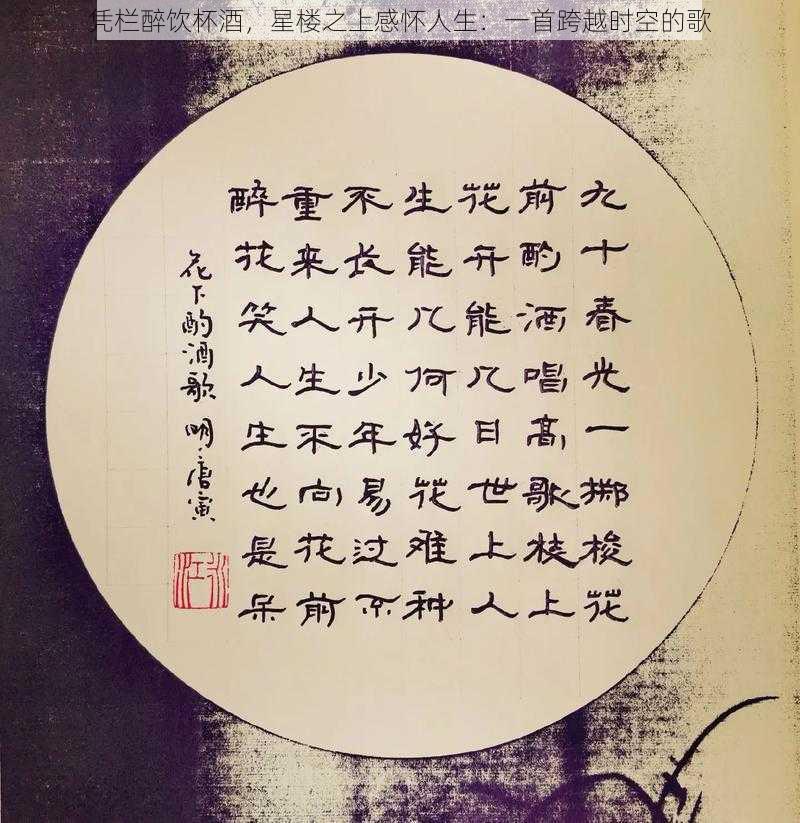 凭栏醉饮杯酒，星楼之上感怀人生：一首跨越时空的歌
九十春光一掷梭花
前酌酒唱高歌枝上
花开能几日世上人
生能几何好花难种
不长开少年易过不
重来人生不向花前
醉花笑人生也是呆
花下酌酒歌 明:唐寅